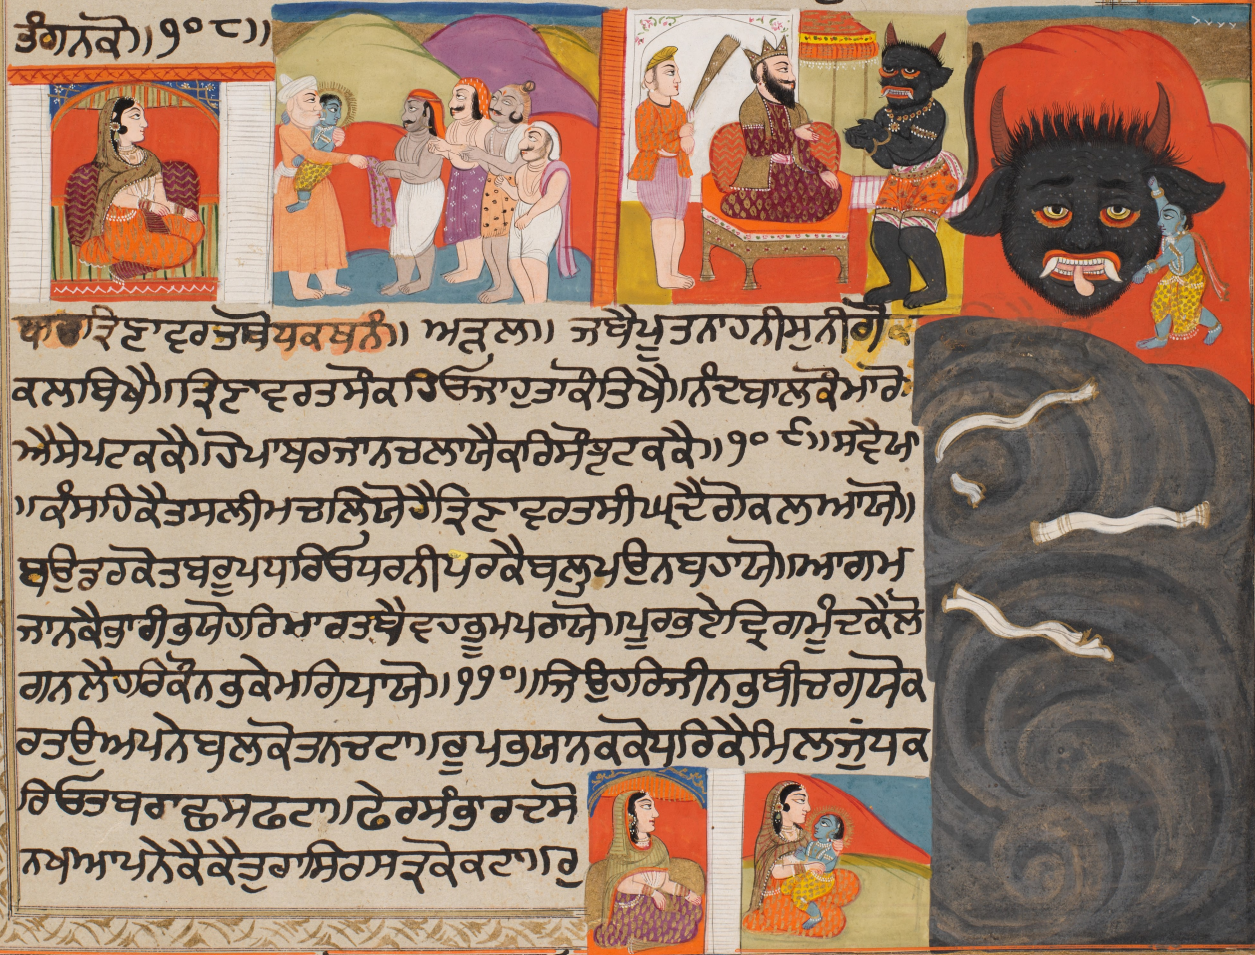 ਤੰਗਨਕੋ॥੧੦੮॥
ਅਥਤ੍ਰਿਣਾਵਰਤਬੋਧਕਥਨੰ॥ ਅੜਲ॥ ਜਬੈਪੂਤਨਾਹਨੀਸੁਨੀਗੋ
ਕਲਬਿਖੈ॥ਤ੍ਰਿਣਾਵਰਤਸੋਕਹਿਓਜਾਹੁਤਾਕੋਤਿਖੈ॥ਨੰਦਬਾਲਕੋਮਾਰੋ
ਐਸੇਪਟਕਕੈ॥ਹੋਪਾਥਰਜਾਨਚਲਾਯੈਕਰਿਸੋਝਟਕਕੈ॥੧੦੯॥ਸਵੈਯਾ
॥ਕੰਸਹਿਕੈਤਸਲੀਮਚਲਿਯੋਹੈਤ੍ਰਿਣਾਵਰਤਸੀਘ੍ਰਦੈਗੋਕਲਆਯੋ॥
ਬਉਡਰਕੋਤਬਰੂਪਧਰਿਓਧਰਨੀਪਰਕੈਬਲੁਪਉਨਬਹਾਯੋ॥ਆਗਮ
ਜਾਨਕੈਭਾਰੀਭਯੋਹਰਿਮਾਰਤਬੈਵਹਭੂਮਪਰਾਯੋ॥ਪੂਰਭਏਦ੍ਰਿਗਮੂੰਦਕੈਲੋ
ਗਨਲੈਹਰਿਕੌਨਭਕੇਮਗਿਧਾਯੋ॥੧੧੦॥ਜਿਉਹਰਿਜੀਨਭਬੀਚਗਯੋਕ
ਰਤਉਅਪਨੇਬਲਕੋਤਨਚਟਾ॥ਰੂਪਭਯਾਨਕਕੋਧਰਿਕੈਮਿਲਜੁੰਧਕ
ਰਿਓਤਬਰਾਛਸਫਟਾ॥ਫੇਰਸੰਭਾਰਦਸੋ
ਨਖਆਪਨੇਕੈਕੈਤੁਰਾਸਿਰਸਤ੍ਰਕੋਕਟਾ॥ਰੁ